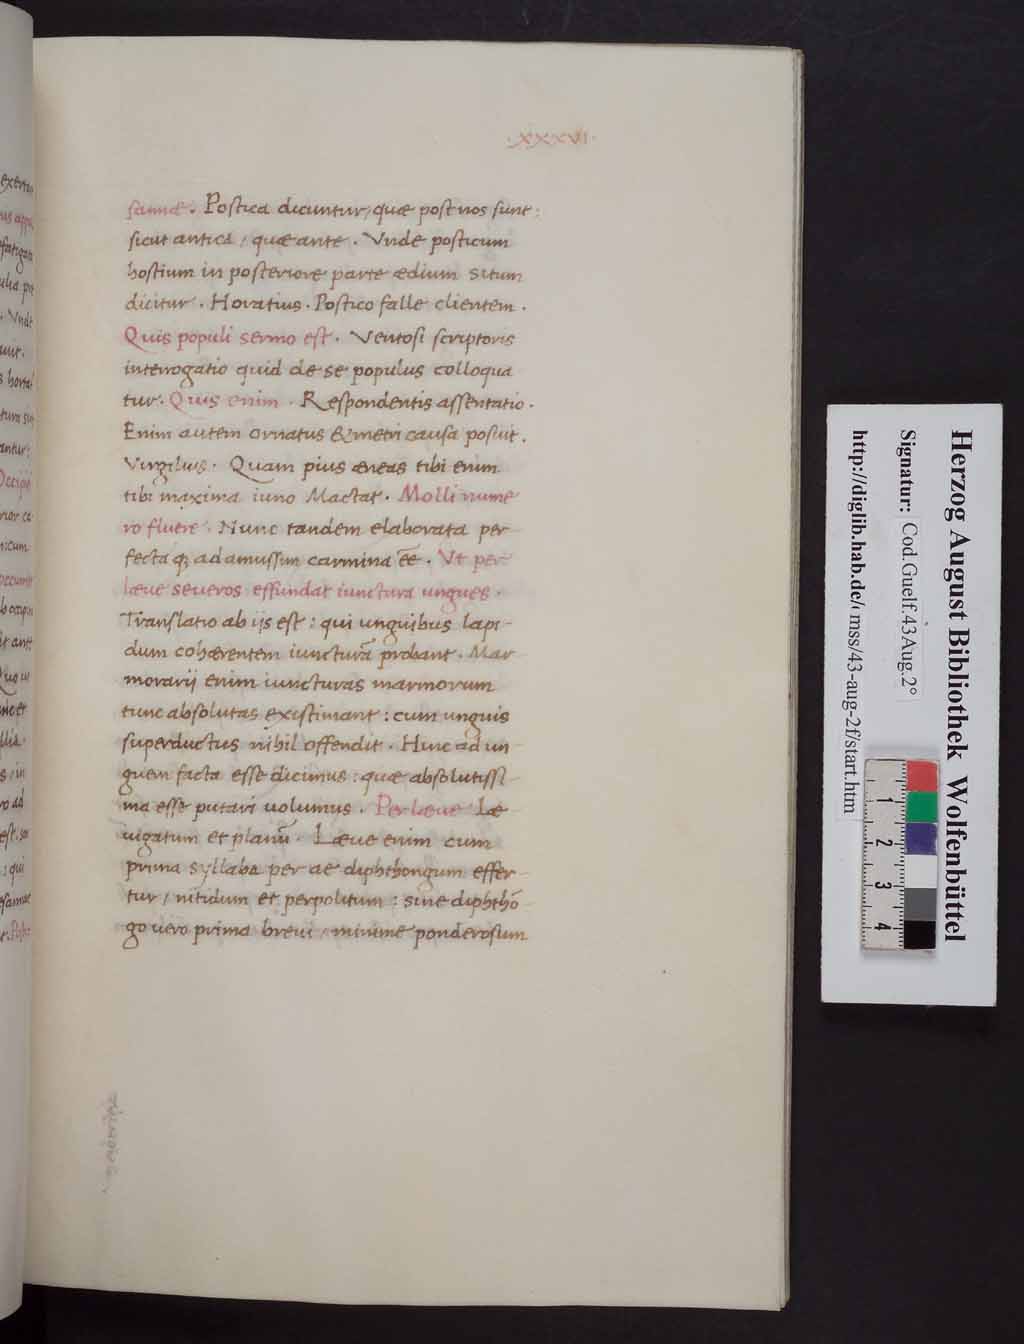 ·XXXVI·
sannæ. Postica dicuntur/ quæ post nos sunt:
sicut antica / quæ ante. Vnde posticum
hostium in posteriore parte ædium situm
dicitur. Horatius. Postico falle clientem.
Quis populi sermo est. Ventosi scriptoris
interrogatio quid de se populus colloqua
tur. Quis enim. Respondentis assentatio.
Enim autem ornatus & metri causa posuit.
Virgilius. Quam pius æneas tibi enim
tibi maxima iuno Mactat. Molli nume
ro fluere. Nunc tandem elaborata per-
fectaq; ad amussim carmina eē. Vt per
læue seueros effundat iunctura ungues.
Translatio ab ijs est: qui unguibus lapi-
dum cohærentem iuncturā probant. Mar
morarij enim iuncturas marmorum
tunc absolutas existimant: cum unguis
superductus nihil offendit. Hinc ad un-
guem facta esse dicimus: quæ absolutissi-
ma esse putari uolumus. Per læue Læ
uigatum et planū. Læue enim cum
prima syllaba per ae diphthongum effer-
tur / nitidum et perpolitum: sine diphthō
go uero prima breui / minime ponderosum
exerta
fatigat
. Vnde
Herzog August Bibliothek Wolfenbüttel
Signatur: Cod.Guelf.43 Aug.2°
http://diglib.hab.de/ mss/43-aug-2f/start.htm
1 2 3 4